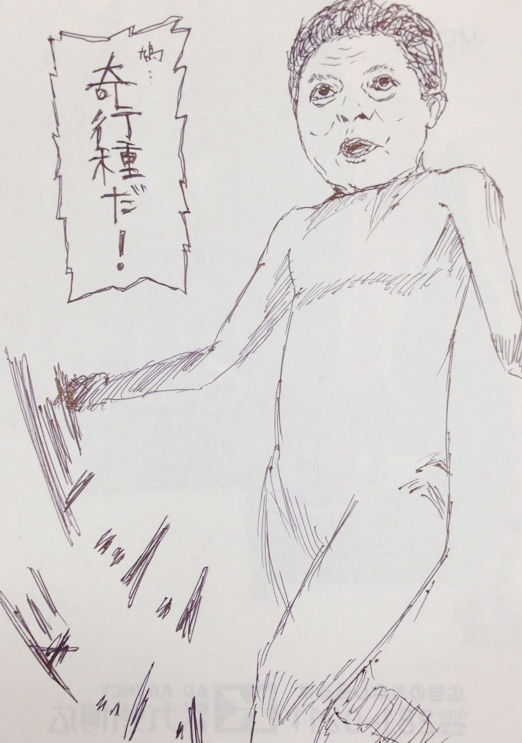 鳩…
奇行種だ！